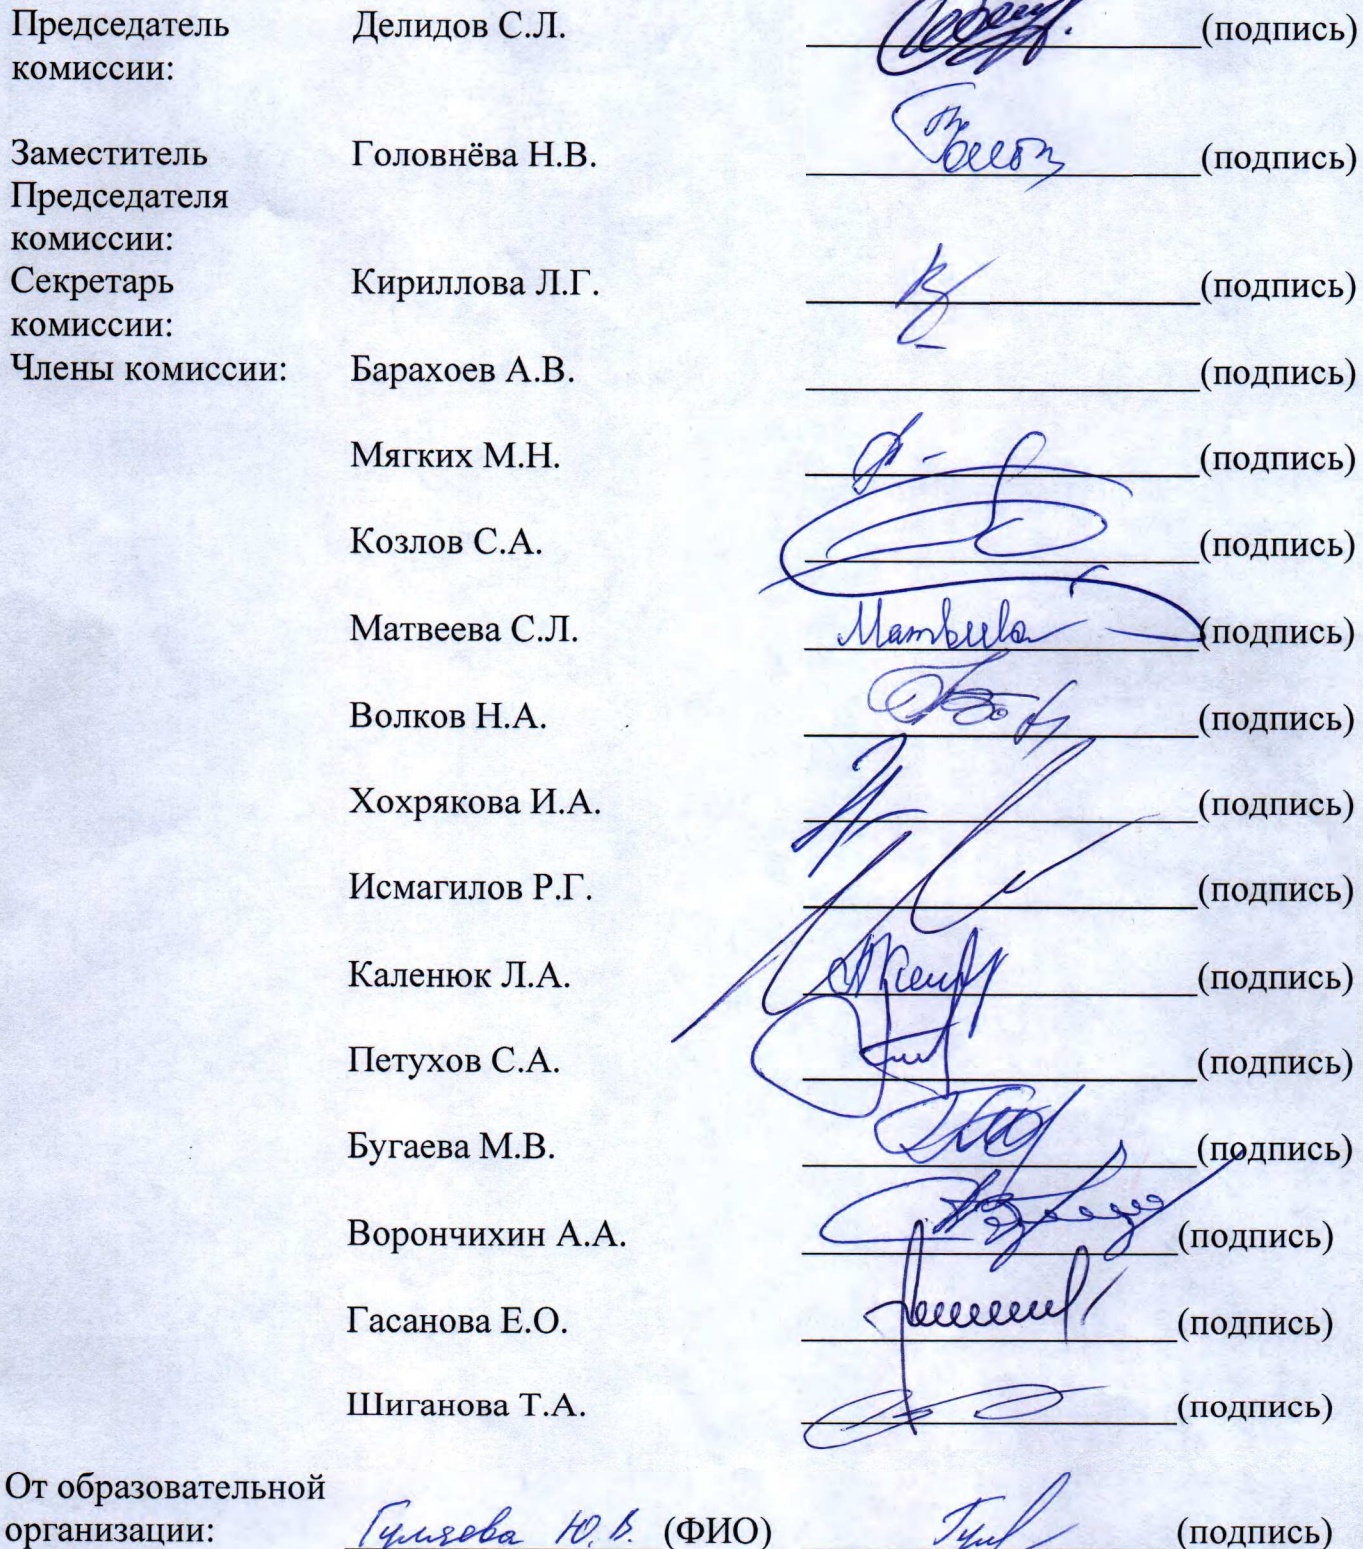 Председатель Делидов С.Л. (подпись)
комиссии:
Заместитель Головнёва Н.В. (подпись)
Председателя
комиссии:
Секретарь Кириллова Л.Г. (подпись)
комиссии:
Члены комиссии: Барахоев А.В. (подпись)
Мягких М.Н. (подпись)
Козлов С.А. (подпись)
Матвеева С.Л. Матвеева (подпись)
Волков Н.А. (подпись)
Хохрякова И.А. (подпись)
Исмагилов Р.Г. (подпись)
Каленюк Л.А. (подпись)
Петухов С.А. (подпись)
Бугаева М.В. (подпись)
Ворончихин А.А. (подпись)
Гасанова Е.О. (подпись)
Шиганова Т.А. (подпись)
От образовательной
организации: Ю.В. (ФИО) (подпись)